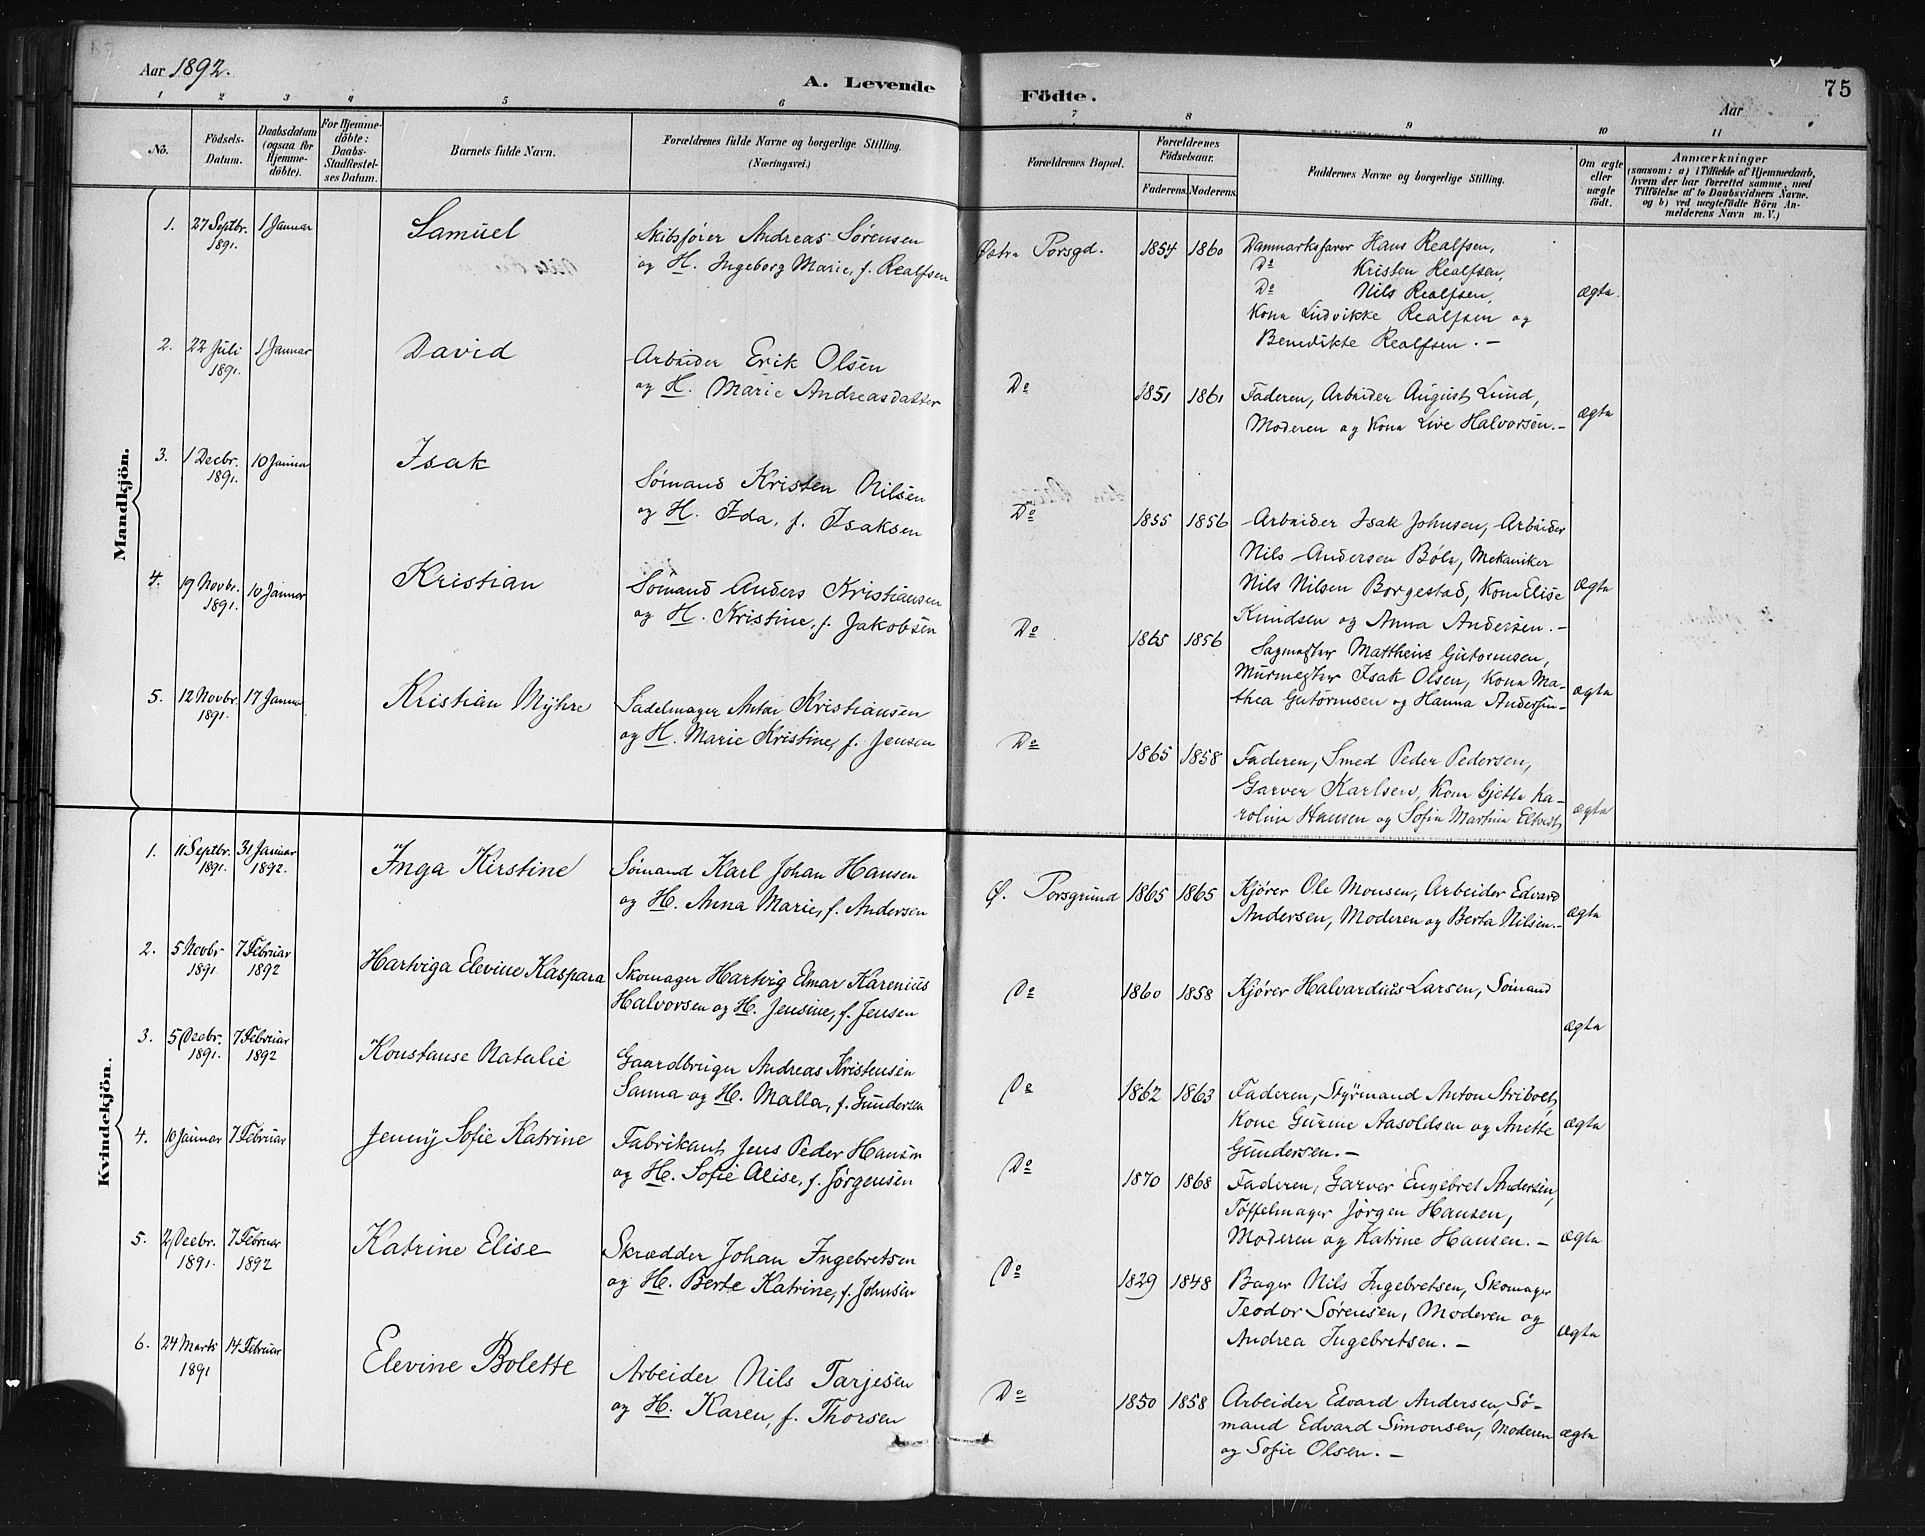 Aar 1892.
A. Levende
Födte.
Aar
75
1 2 3 4 5 6 7 8 9 10 11
No.
Födsels-Datum.
Daabsdatum (ogsaa for Hjemmedöbte).
For Hjemmedöbte: Daabs-Stadfæstelses Datum.
Barnets fulde Navn.
Forældrenes fulde Navne og borgerlige Stilling. (Næringsvei.)
Forældrenes Bopæl.
Forældrenes Födselsaar.
Faderens. Moderens.
Faddernes Navne og borgerlige Stilling.
Om ægte eller uægte födt.
Anmærkninger
(saasom: a) i Tilfælde af Hjemmedaab, hvem der har forrettet samme, med Tilföielse af to Daabsvidners Navne, og b) ved uægtefödte Börn Anmelderens Navn m. V.)
Mandkjön.
1. 27 Septbr. 1891. 1 Januar Samuel
Skibsfører Andreas Sørensen
og H. Ingeborg Marie, f. Realfsen
Østre Porsgd. 1854 1860
Danmarksfarer Hans Realfsen,
Do Kristen Realfsen,
Do Nils Realfsen,
Kone Ludvikke Realfsen og
Benedikte Realfsen. —
ægte
2. 22 Juli 1891. 1 Januar David
Arbeider Erik Olsen
og H. Marie Andreasdatter
Do 1851 1861
Faderen, Arbeider August Lund,
Moderen og Kone Live Halvorsen. —
ægte
3. 1 Decbr. 1891. 10 Januar Isak
Sømand Kristen Nilsen
og H. Ida, f. Isaksen
Do 1855 1856
Arbeider Isak Johnsen, Arbeider
Nils Andersen Böle, Mekaniker
Nils Nilsen Borgestad, Kone Elise
Knudsen og Anna Andersen. —
ægte
4. 19 Novbr. 1891. 10 Januar Kristian
Sømand Anders Kristiansen
og H. Kristine, f. Jakobsen
Do 1865 1856
Sagmester Mattheus Gutormsen,
Murmester Isak Olsen, Kone Ma-
thea Gutormsen og Hanna Andersen—
ægte
5. 12 Novbr. 1891. 17 Januar Kristian Myhre
Sadelmager Anton Kristiansen
og H. Marie Kristine, f. Jensen
Do 1865 1858
Faderen, Smed Peder Pedersen,
Garver Karlsen, Kone Gjette Ka-
roline Hansen og Sofie Martine
ægte
Kvindekjön.
1. 11 Septbr. 1891. 31 Januar 1892. Inga Kirstine
Sømand Karl Johan Hansen
og H. Anna Marie, f. Andersen
Ø. Porsgrund 1865 1865
Kjører Ole Monsen, Arbeider Edvard
Andersen, Moderen og Berta Nilsen. —
ægte
2. 5 Novbr 1891. 7 Februar 1892 Hartviga Elevine Kaspara
Skomager Hartvig Elmar Karenius
Halvorsen og H. Jensine, f. Jensen
Do 1860 1858
Kjører Halvardius Larsen, Sömand
ægte
3. 5 Decbr. 1891. 7 Februar 1892 Konstanse Natalie
Gaardbruger Andreas Kristensen
Sanna og H. Malla, f. Gundersen
Do 1862 1863
Faderen, Styrmand Anton Stribolt,
Kone Gurine Aasoldsen og Anette
Gundersen. —
ægte
4. 10 Januar 7 Februar Jenny Sofie Katrine
Fabrikant Jens Peder Hansen
og H. Sofie Alise, f. Jörgensen
Do 1870 1868
Faderen, Garver Engebret Andersen,
Töffelmager Jörgen Hansen,
Moderen og Katrine Hansen. —
ægte
5. 2 Decbr. 1891. 7 Februar 1892 Katrine Elise
Skrædder Johan Ingebretsen
og H. Berte Katrine, f. Johnsen
Do 1829 1848
Bager Nils Ingebretsen, Skomager
Teodor Sørensen, Moderen og
Andrea Ingebretsen. —
ægte
6. 24 Marts 1891 14 Februar Elevine Bolette
Arbeider Nils Tarjesen
og H. Karen, f. Thorsen
Do 1850 1858
Arbeider Edvard Andersen, Sø-
mand Edvard Simonsen, Moderen
og Sofie Olsen. —
ægte